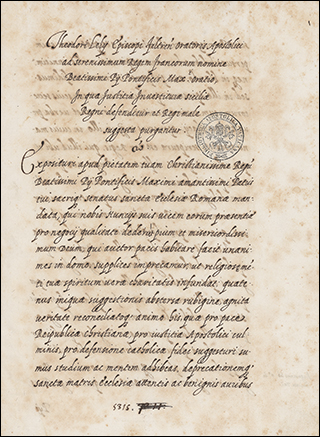 Theodori Lelij Episcopi feltren Oratoris Apostolici
ad serenissimum Regem francorum nomine
Beatissimi Pij Pontificis Maxi oratio
In qua Justitia Inuestitura sicilie
Regni defenditur et Regi male
suggesta purgantur
Exposituri apud pietatem tuam Christianissime Regi
Beatissimi Pij Pontificis Maximi amantissimi Patris
tui sacriq senatus sancta Ecclesia Romana man-
data, qui nobis suam uicem coram presentis
pro negocij qualitate dederunt piissimum et misericordissi-
mum Deum, qui auctor pacis habitare facit unani-
mes in domo, supplices imprecamur ut religiosæ men-
ti tua spiritum uera charitatis infundat, quate-
nus iniqua suggestionis abtersa rubigine, agnita
ueritate reconciliatoq animo, his qua pro pace
Reipublica Christiana, pro iustitia Apostolici cul-
minis, pro defensione catholica fidei suggesturi su-
mus studium ac mentem adhibeas, deprecationemq
sancta matris Ecclesia attentis ac benignis auribus
5315.